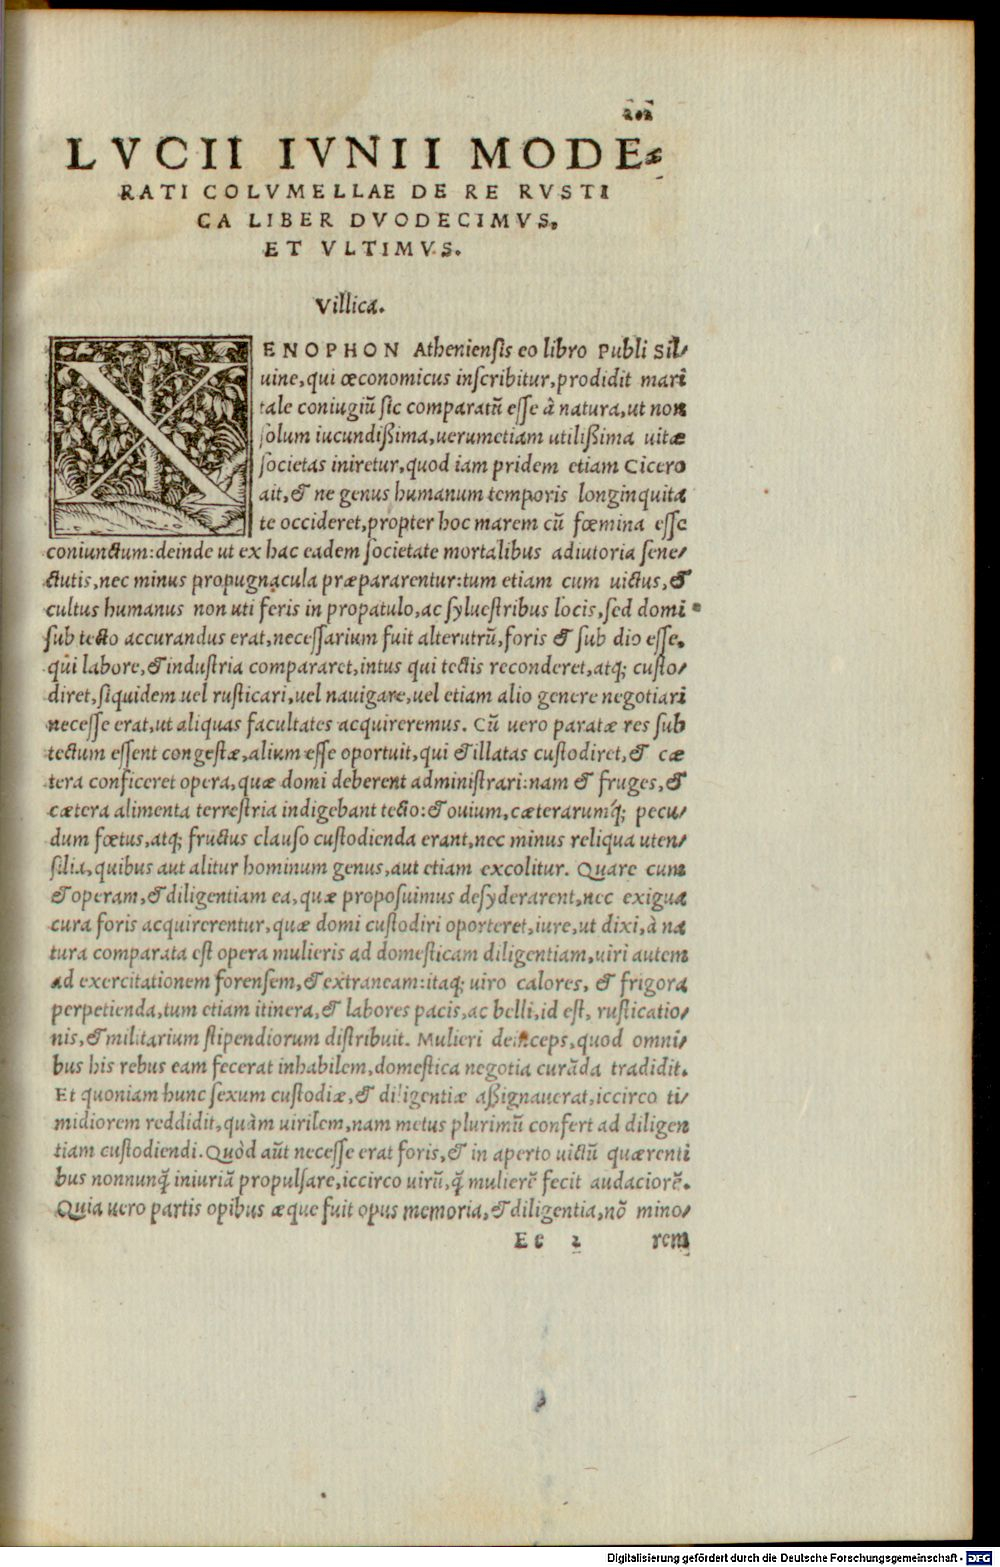 202
LVCII IVNII MODE-
RATI COLVMELLAE DE RE RVSTI
CA LIBER DVODECIMVS,
ET VLTIMVS.
Villica.
XENOPHON Atheniensis eo libro Publi Sil/
uine, qui œconomicus inscribitur, prodidit mari
tale coniugiũ sic comparatũ esse à natura, ut non
solum iucundißima, uerumetiam utilißima uitæ
societas iniretur, quod iam pridem etiam Cicero
ait, & ne genus humanum temporis longinquita
te occideret, propter hoc marem cũ fœmina esse
coniunctum: deinde ut ex hac eadem societate mortalibus adiutoria sene/
ctutis, nec minus propugnacula præpararentur: tum etiam cum uictus, &
cultus humanus non uti feris in propatulo, ac syluestribus locis, sed domi
sub tecto accurandus erat, necessarium fuit alterutrũ, foris & sub dio esse.
qui labore, & industria compararet, intus qui tectis reconderet, atq; custo/
diret, siquidem uel rusticari, uel nauigare, uel etiam alio genere negotiari
necesse erat, ut aliquas facultates acquireremus. Cũ uero paratæ res sub
tectum essent congestæ, alium esse oportuit, qui & illatas custodiret, & cæ
tera conficeret opera, quæ domi deberent administrari: nam & fruges, &
cætera alimenta terrestria indigebant tecto: & ouium, cæterarumq́; pecu/
dum fœtus, atq; fructus clauso custodienda erant, nec minus reliqua uten/
silia, quibus aut alitur hominum genus, aut etiam excolitur. Quare cum
& operam, & diligentiam ea, quæ proposuimus desyderarent, nec exigua
cura foris acquirerentur, quæ domi custodiri oporteret, iure, ut dixi, à na
tura comparata est opera mulieris ad domesticam diligentiam, uiri autem
ad exercitationem forensem, & extraneam: itaq; uiro calores, & frigora
perpetienda, tum etiam itinera, & labores pacis, ac belli, id est, rusticatio/
nis, & militarium stipendiorum distribuit. Mulieri deinceps, quod omni/
bus his rebus eam fecerat inhabilem, domestica negotia curãda tradidit.
Et quoniam hunc sexum custodiæ, & diligentiæ aßignauerat, iccirco ti/
midiorem reddidit, quàm uirilem, nam metus plurimũ confert ad diligen
tiam custodiendi. Quòd aũt necesse erat foris, & in aperto uictũ quærenti
bus nonnunq̃ iniuriã propulsare, iccirco uirũ, q̃ mulierẽ fecit audaciorẽ.
Quia uero partis opibus æque fuit opus memoria, & diligentia, nõ mino/
Ee 2 rem
Digitalisierung gefördert durch die Deutsche Forschungsgemeinschaft - DFG